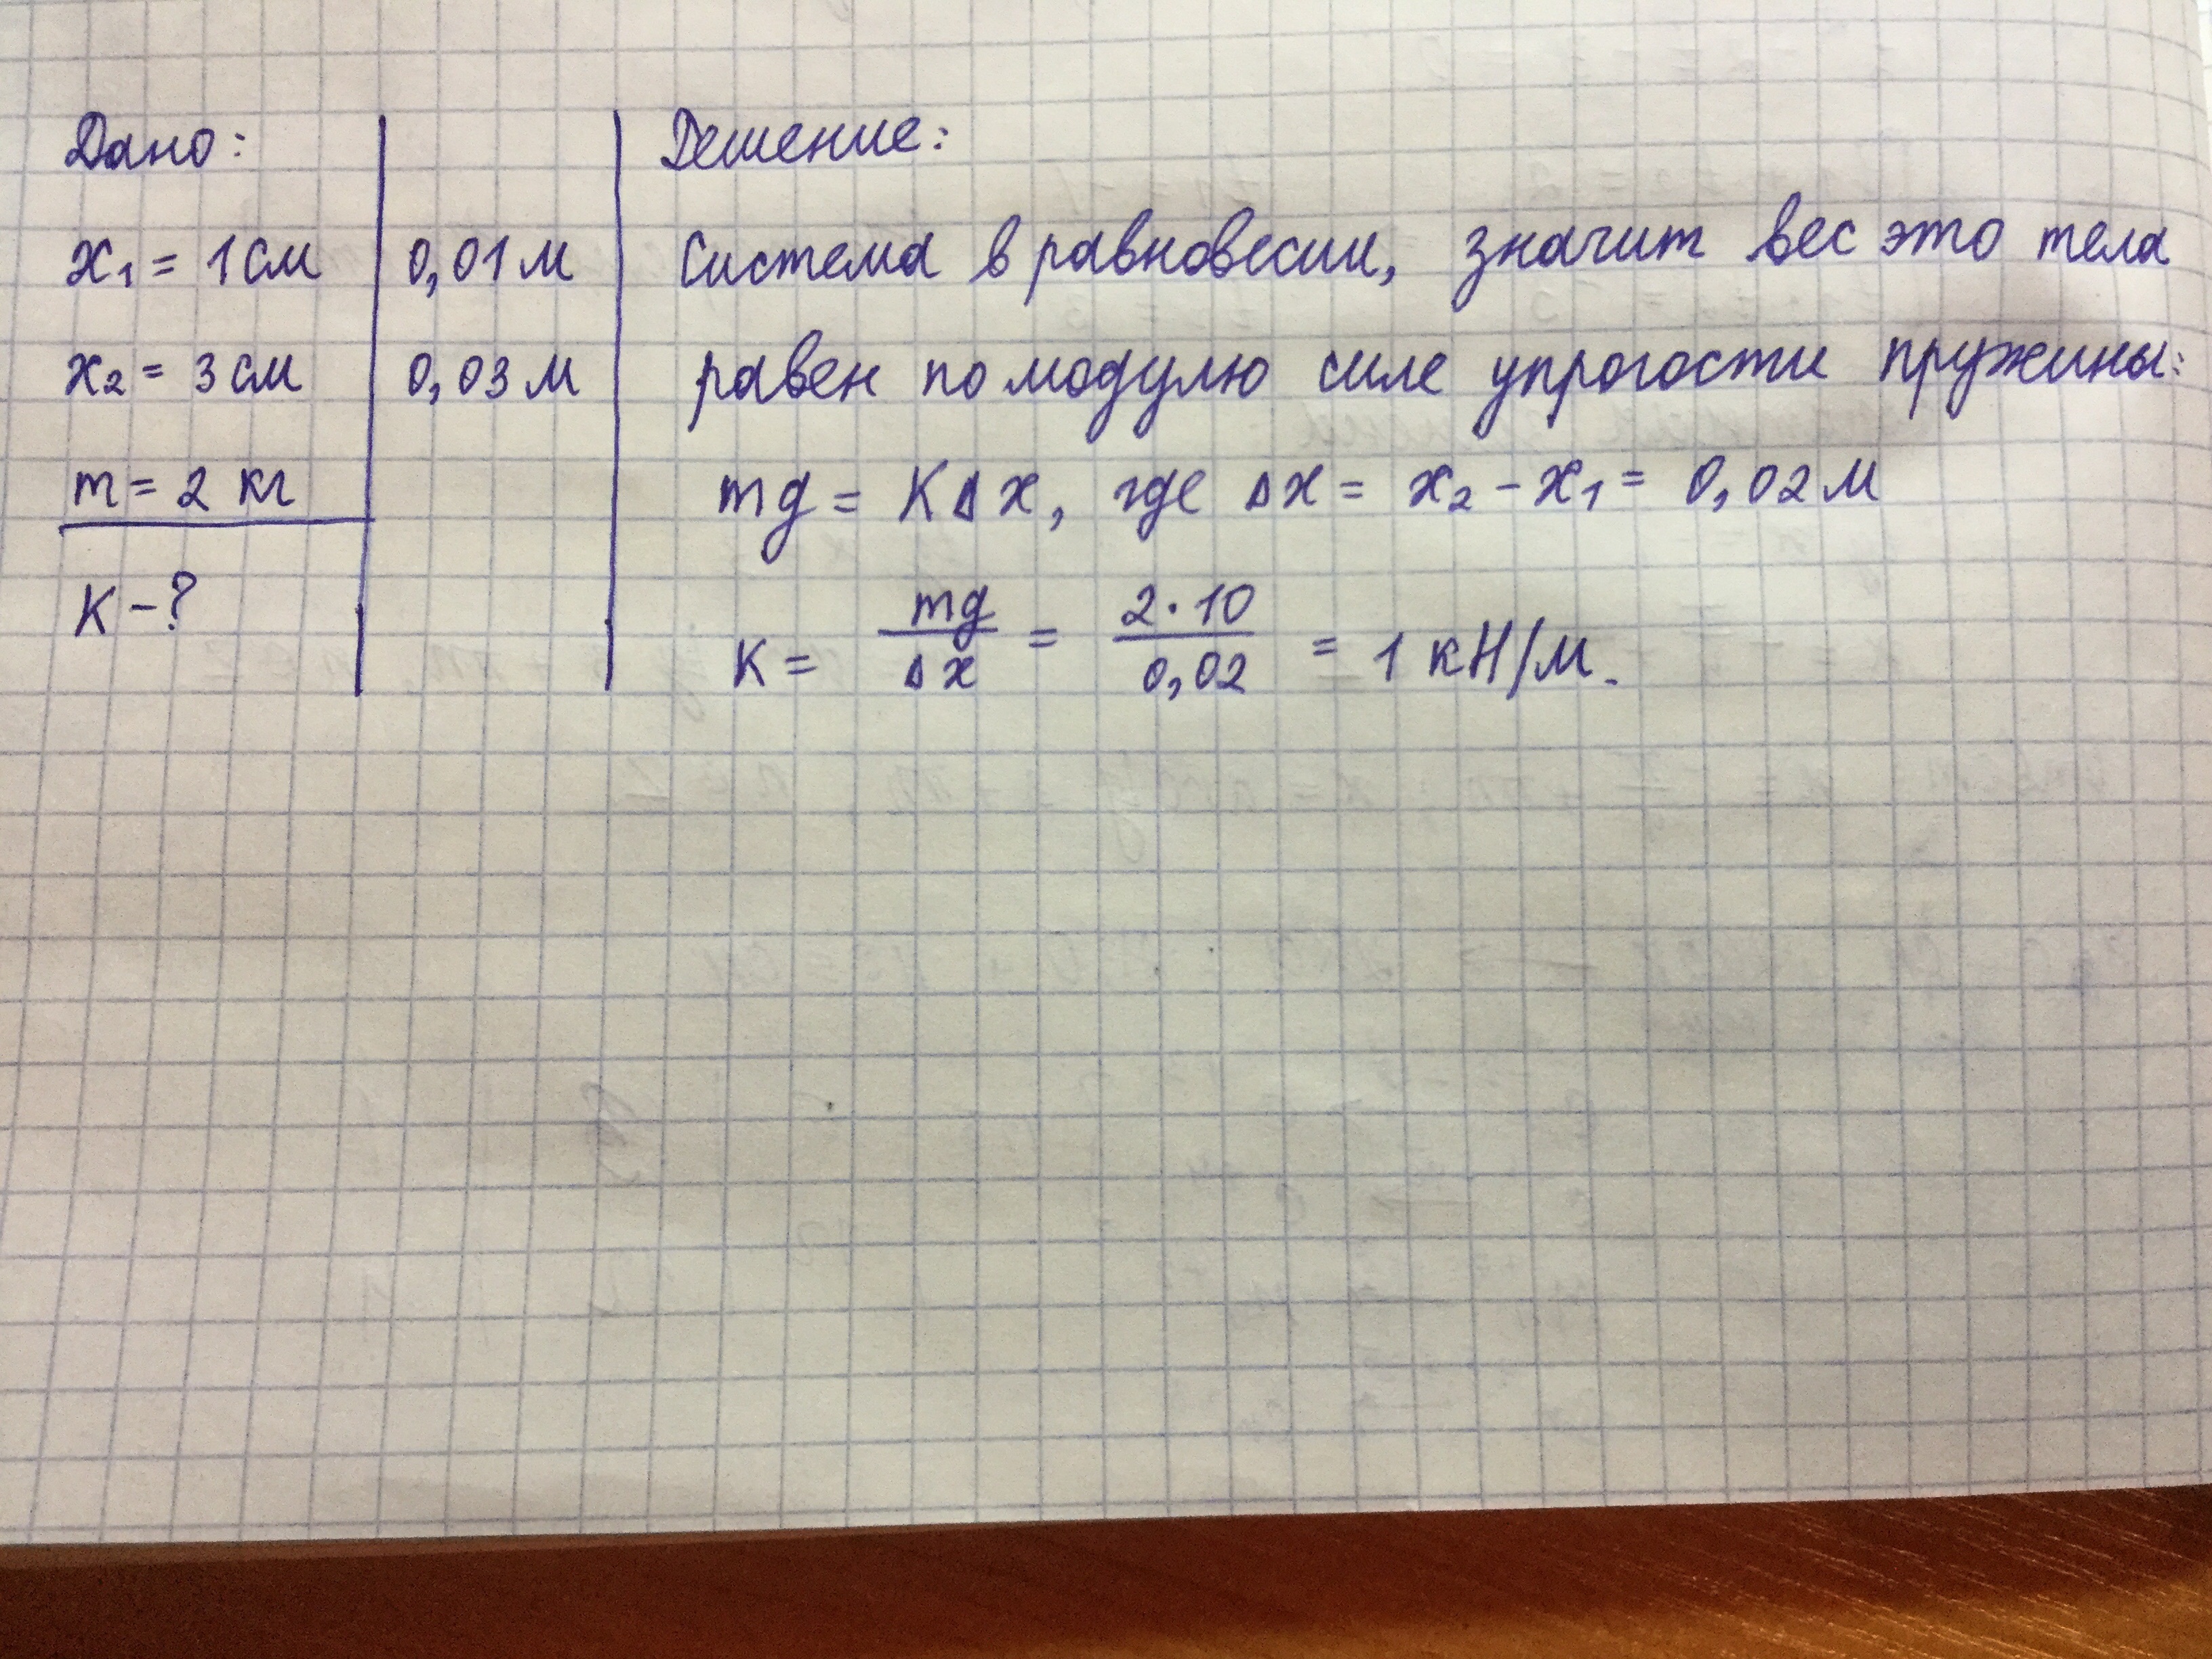 Дано:
x₁ = 1 см
0,01 м
x₂ = 3 см
0,03 м
m = 2 кг
K - ?
Решение:
Система в равновесии, значит вес это тела
равен по модулю силе упрогости пружины:
mg = KΔx, где Δx = x₂ - x₁ = 0,02 м
K = mg/Δx = 2·10/0,02 = 1 кН/м.